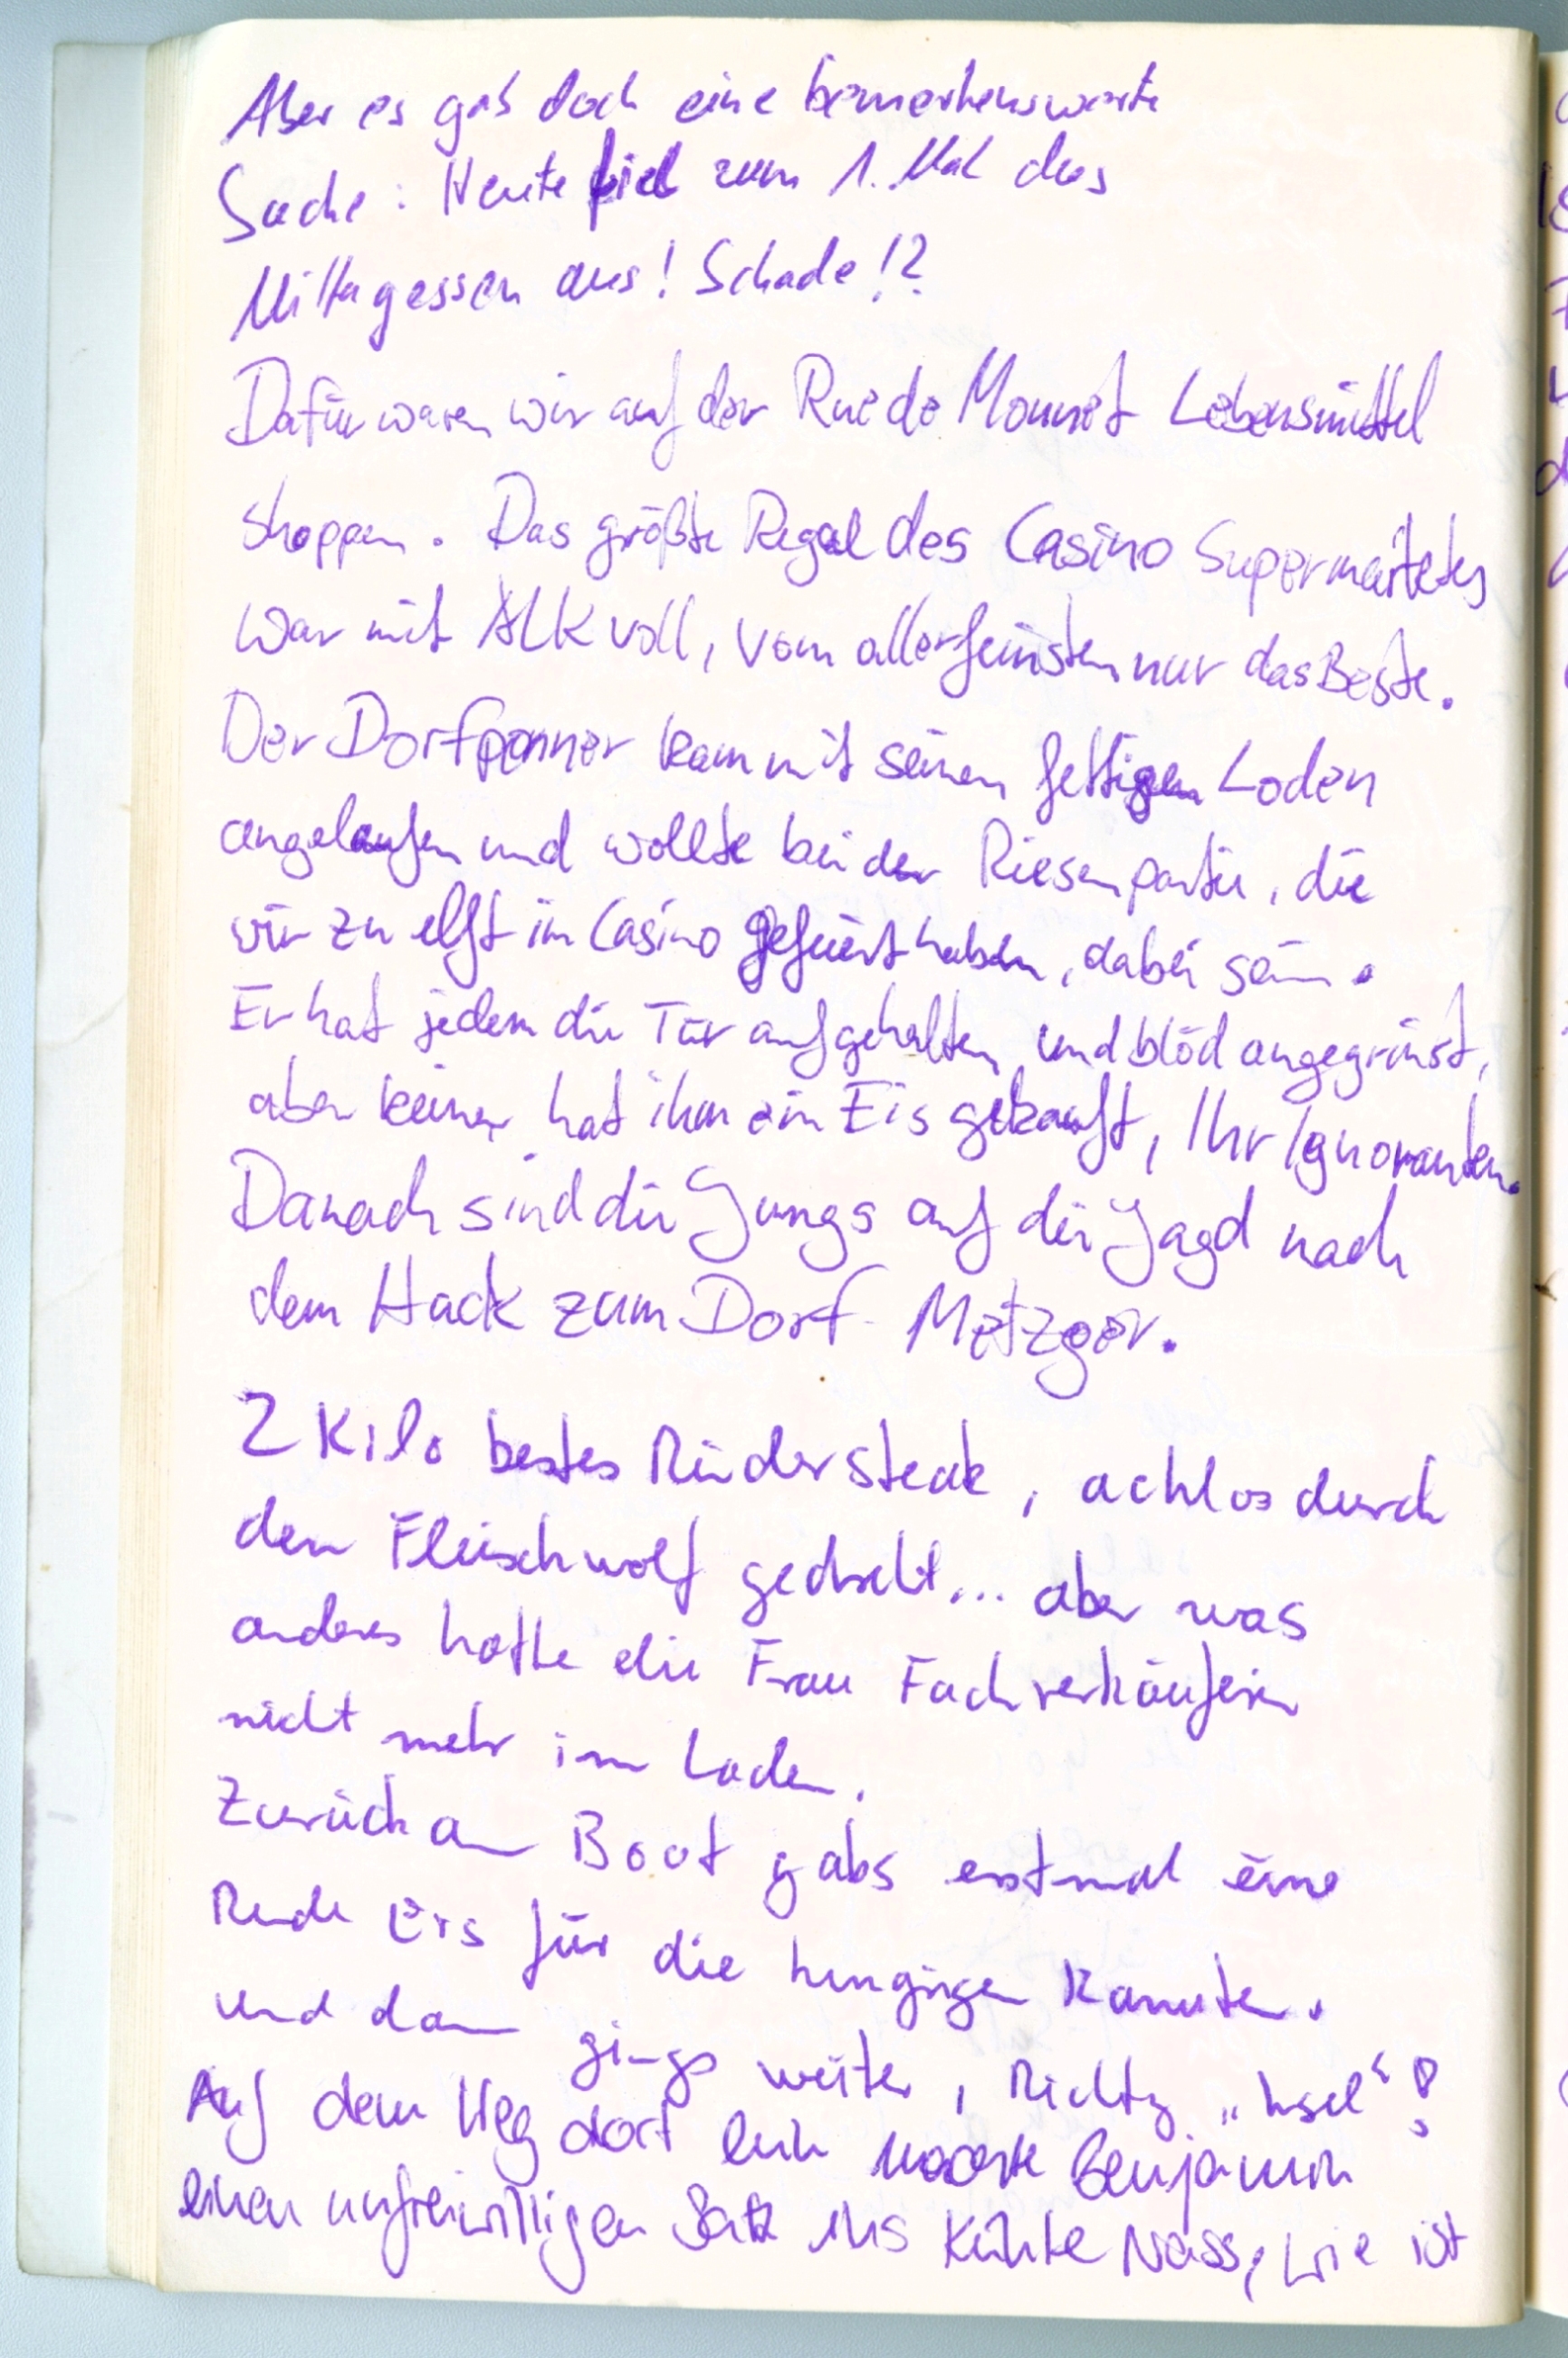 Aber es gab doch eine bemerkenswerte
Sache: Heute fiel zum 1. Mal das
Mittagessen aus! Schade!?
Dafür waren wir auf der Rue de Monnet Lebensmittel
shoppen. Das größte Regal des Casino Supermarktes
war mit ALK voll, vom allerfeinsten nur das Beste.
Der Dorfpenner kam mit seinen fettigen Loden
angelaufen und wollte bei der Riesenpartie, die
wir zu elft im Casino gefeiert haben, dabei sein.
Er hat jedem die Tür aufgehalten und blöd angegrinst,
aber keiner hat ihm ein Eis gekauft, Ihr Ignoranten.
Danach sind die Jungs auf die Jagd nach
dem Hack zum Dorf-Metzger.
2 Kilo bestes Rindersteak, achlos durch
den Fleischwolf gedreht... aber was
anderes hatte die Frau Fachverkäuferin
nicht mehr im Laden.
Zurück am Boot gabs erstmal eine
Runde Eis für die hungrigen Kanuten.
Und dann gings weiter, Richtg "Insel"!
Auf dem Weg dort machte Benjamin
einen unfreiwilligen Satz ins Kühle Nass, wie ist